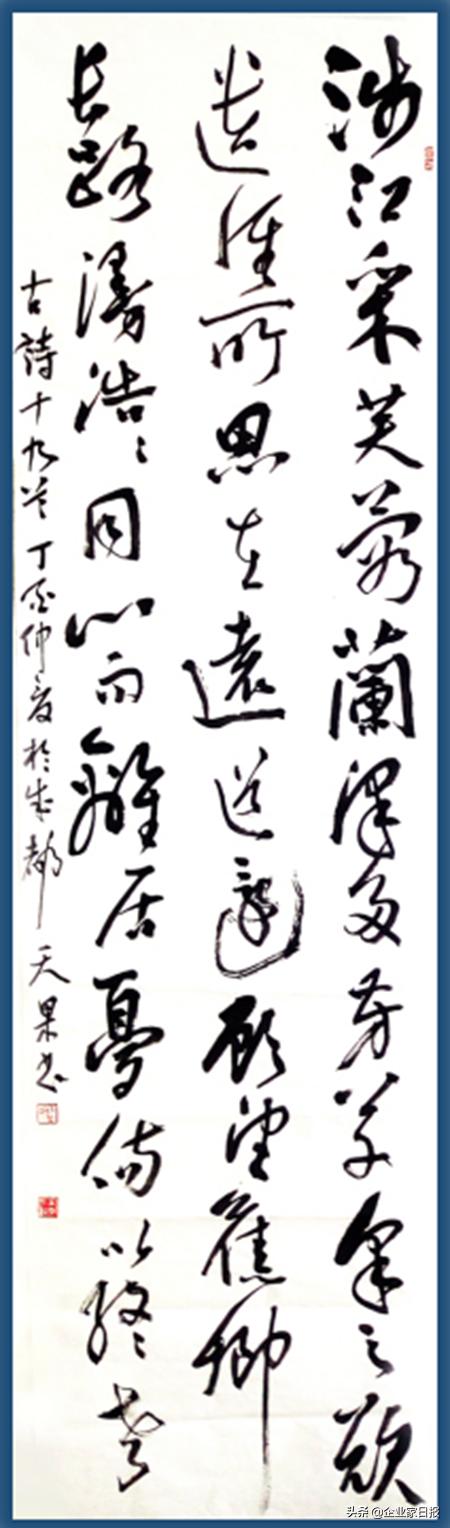 涉江采芙蓉蘭澤多芳草采之欲
遺誰所思在遠道還顧望舊鄉
長路漫浩〻同心而離居憂傷以終老
古詩十九首 丁酉仲夏於成都 天果书
头条 @企业家日报